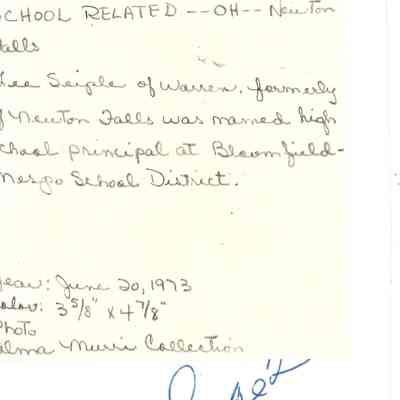 SCHOOL RELATED -- OH -- Newton
Falls
Lee Seiple of Warren, formerly
of Newton Falls was named high
school principal at Bloomfield-
Mespo School District.
Year: June 20, 1973
Color: 3 5/8" x 4 7/8"
Photo
Collection